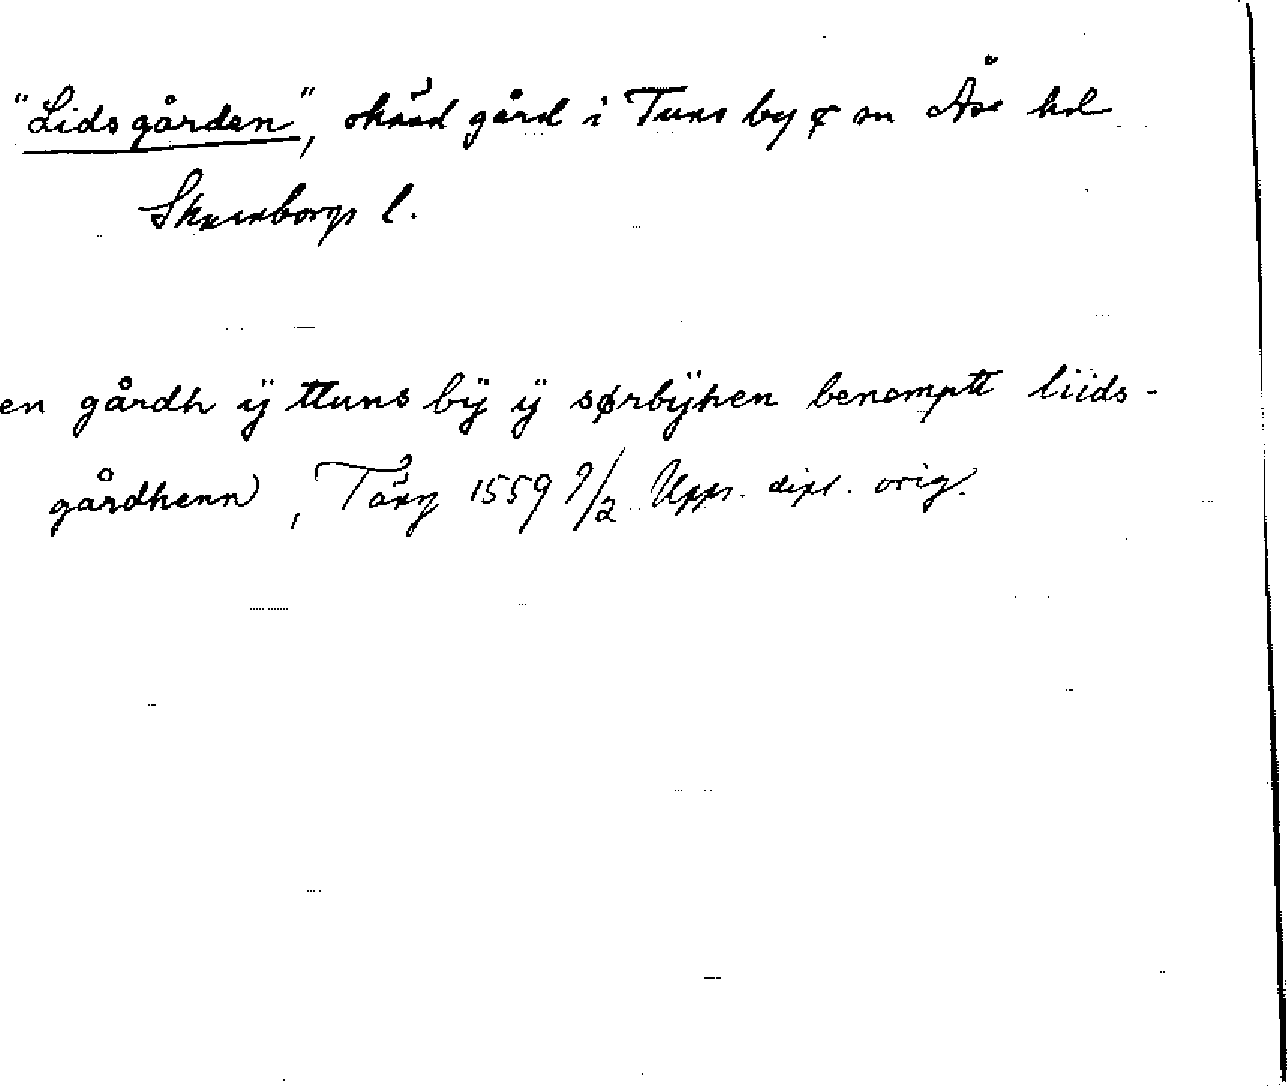 "Lidsgården", okänd gård i Tuns by o sn Åse hd
Skaraborgs l.
en gårdh ÿ ttuns bÿ ÿ sørbÿhen benemptt liids-
gårdhenn), Täng 1559 9/2 Upps. dipl. orig.